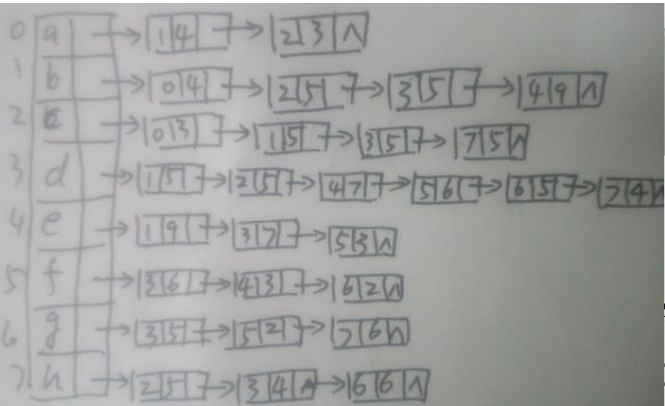 0 a → 1 4 → 2 3 ∧
1 b → 0 4 → 2 5 → 3 5 → 4 9 ∧
2 c → 0 3 → 1 5 → 3 5 → 7 5 ∧
3 d → 1 5 → 2 5 → 4 7 → 5 6 → 6 5 → 7 4 ∧
4 e → 1 9 → 3 7 → 5 3 ∧
5 f → 3 6 → 4 3 → 6 2 ∧
6 g → 3 5 → 5 2 → 7 6 ∧
7 h → 2 5 → 3 4 → 6 6 ∧